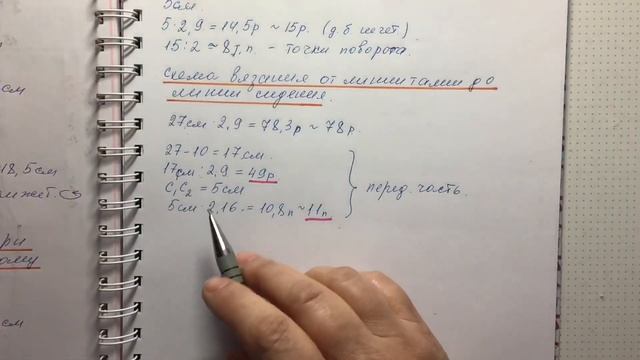 5см.
5·2,9 = 14,5р ~ 15р. (д.б нечет)
15:2 ≈ 8 т.п. - точки поворота.
Схема вязания от линии талии до
линии сидения.
27см·2,9 = 78,3р ~ 78р.
27-10 = 17см.
17см·2,9 = 49р.
С₁С₂ = 5см
5см·2,16 = 10,8п ~ 11п
перед. часть.
см
18,5см
см